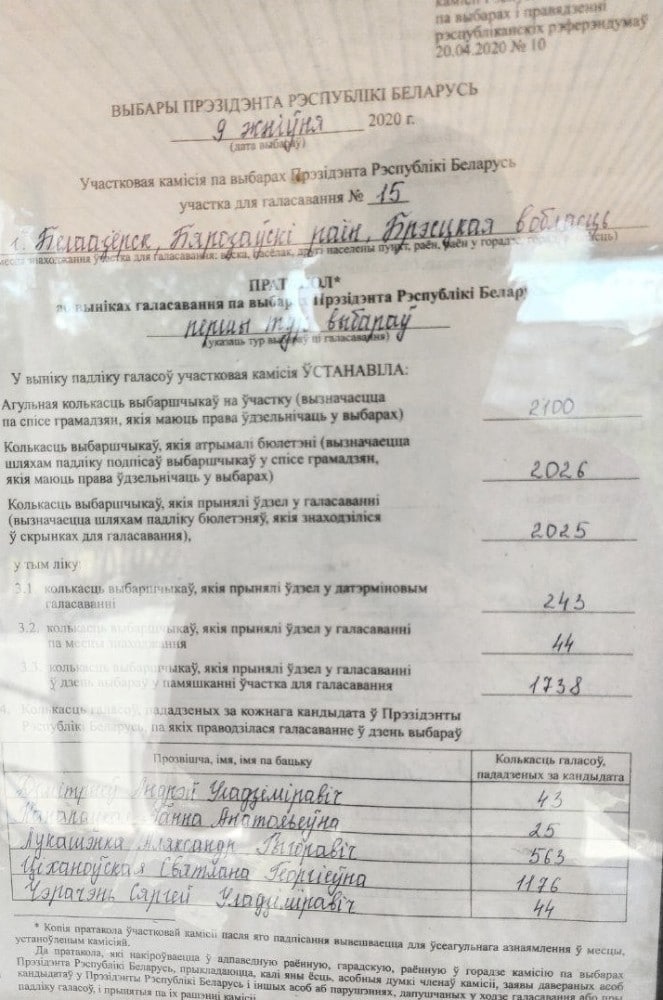 камісіі па
па выбарах і правядзенні
рэспубліканскіх рэферэндумаў
20.04.2020 № 10
ВЫБАРЫ ПРЭЗІДЭНТА РЭСПУБЛІКІ БЕЛАРУСЬ
9 жніўня 2020 г.
(дата выбараў)
Участковая камісія па выбарах Прэзідэнта Рэспублікі Беларусь
участка для галасавання № 15
г. Белаазёрск, Бярозаўскі раён, Брэсцкая вобласць
месца знаходжання ўчастка для галасавання: вёска, пасёлак, другі населены пункт, раён, раён у горадзе, горад, вобласць)
ПРАТАКОЛ*
аб выніках галасавання па выбарах Прэзідэнта Рэспублікі Беларусь
першы тур выбараў
(указаць тур выбараў ці галасавання)
У выніку падліку галасоў участковая камісія ЎСТАНАВІЛА:
Агульная колькасць выбаршчыкаў на ўчастку (вызначаецца
па спісе грамадзян, якія маюць права ўдзельнічаць у выбарах) 2100
Колькасць выбаршчыкаў, якія атрымалі бюлетэні (вызначаецца
шляхам падліку подпісаў выбаршчыкаў у спісе грамадзян,
якія маюць права ўдзельнічаць у выбарах) 2026
Колькасць выбаршчыкаў, якія прынялі ўдзел у галасаванні
(вызначаецца шляхам падліку бюлетэняў, якія знаходзіліся
ў скрынках для галасавання), 2025
у тым ліку:
3.1 колькасць выбаршчыкаў, якія прынялі ўдзел у датэрміновым
галасаванні 243
3.2. колькасць выбаршчыкаў, якія прынялі ўдзел у галасаванні
па месцы знаходжання 44
3.3. колькасць выбаршчыкаў, якія прынялі ўдзел у галасаванні
ў дзень выбараў у памяшканні ўчастка для галасавання 1738
4. Колькасць галасоў, пададзеных за кожнага кандыдата ў Прэзідэнты
Рэспублікі Беларусь, па якіх праводзілася галасаванне ў дзень выбараў
Прозвішча, імя, імя па бацьку
Колькасць галасоў,
пададзеных за кандыдата
Дмітрыеў Андрэй Уладзіміравіч 43
Канапацкая Ганна Анатольеўна 25
Лукашэнка Аляксандр Рыгоравіч 563
Ціханоўская Святлана Георгіеўна 1176
Чэрачэнь Сяргей Уладзіміравіч 44
* Копія пратакола ўчастковай камісіі пасля яго падпісання вывешваецца для ўсеагульнага азнаямлення ў месцы,
устаноўленым камісіяй.
Да пратакола, які накіроўваецца ў адпаведную раённую, гарадскую, раённую ў горадзе камісію па выбарах
Прэзідэнта Рэспублікі Беларусь, прыкладаюцца, калі яны ёсць, асобныя думкі членаў камісіі, заявы давераных асоб
кандыдатаў у Прэзідэнты Рэспублікі Беларусь і іншых асоб аб парушэннях, дапушчаных у ходзе галасавання або пры
падліку галасоў, і прынятыя па іх рашэнні камісіі.